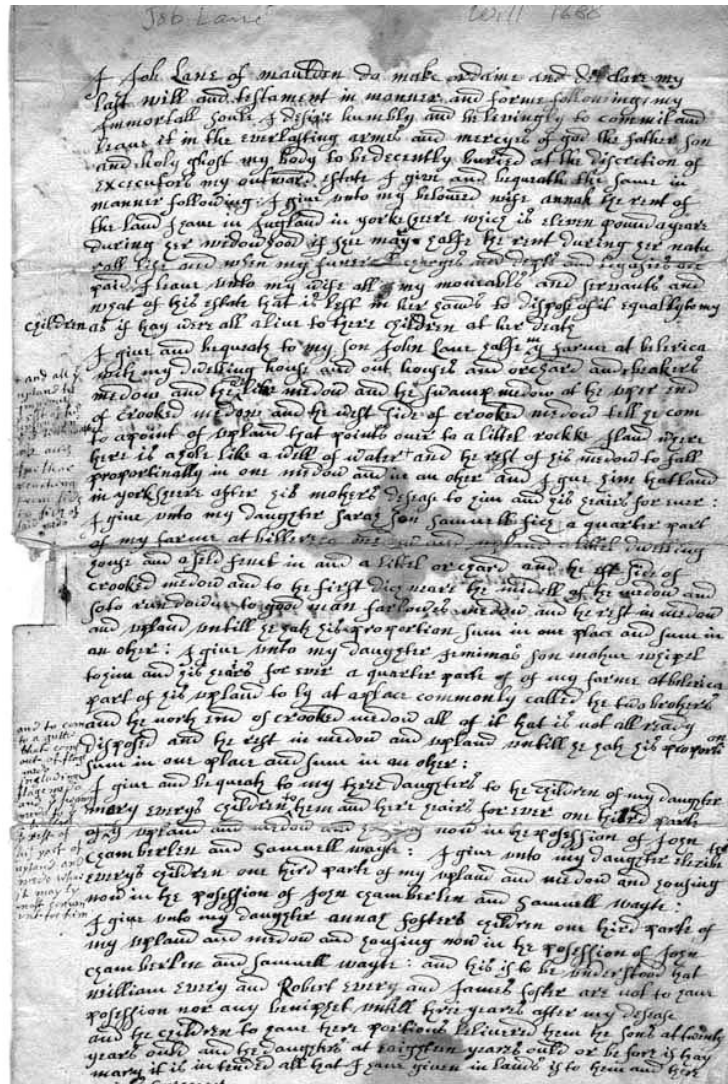 Job Lane Will 1688
I Job Lane of maulden do make ordaine and declare my
last will and testament in manner and forme following: my
Immortall soule I desire humbly and beleivingly to commit and
leave it in the everlasting armes and mercyes of god the father son
and holy ghost my body to be decently buried at the discretion of
Excecutors my outward estate I give and bequeath the same in
manner following: I give unto my beloved wife annah the rent of
the land I have in England in yorksheere which is eleven pound a yeare
during her widowhood if shee mary halfe the rent during her natu
rall life and when my funerall charges and depts and legasies are
paid I leave unto my wife all my moveables and servants and
what of this estate that is left in her hands to dispose of it equally to my
children as if thay were all alive to there children at her death
I give and bequeath to my son John Lane halfe my farme at belerica
with my dwelling house and out houses and orchard and
medow and the medow and the swamp medow at the uper end
of crooked medow and the west side of crooked medow till ye com
to a point of upland that points over to a littel rockke Iland where
there is a hole like a well of water and the rest of his medow to fall
proportinally in one medow and in an other and I give him that land
in yorksheere after his mothers desease to him and his heairs for ever
I give unto my daughter Sarah son Samuell a quarter part
of my farme at and upland a littel dwelling
house and a feld fenct in and a littel orchard and the side of
crooked medow and to the first near the midell of the medow and
so to run down to good man farlowes medow and the rest in medow
and upland untill he hath his proportion sum in one place and sum in
an other: I give unto my daughter Jemimas son
to him and his heairs for ever a quarter parte of of my farme at belerica
part of his upland to ly at a place commonly called the two brothers
and the north end of crooked medow all of it that is not all ready
disposed and the rest in medow and upland untill he hath his proportion
sum in one place and sum in an other:
I give and bequeath to my three daughters to the children of my daughter
mary everys children to them and there heairs for ever one third parte
of my upland and medow and now in the posession of John
Chamberlen and Samuell wayte: I give unto my daughter
everys children one third parte of my upland and medow and housing
now in the posession of John Chamberlen and Samuell wayte:
I give unto my daughter annah fosters children one third parte of
my upland and medow and housing now in the posession of John
Chamberlen and Samuell wayte: and this is to be understood that
william Every and Robert Every and James foster are not to have
posession nor any benifet untill three years after my desease
and the children to have there portions delivered them the sons at twenty
years ould and the daughters at eaighteen years ould or before if thay
mary it is intended all that I have given in lands is to them and there
and all
upland
and to com
to a gutter
that coms
out of
medo
including
rest of
his part of
upland and
medo what
it may ly
most
for him